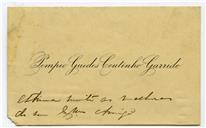 Pompeo Guedes Coutinho Garrido
estima muito as melhoras
do seu Exmo Amigo